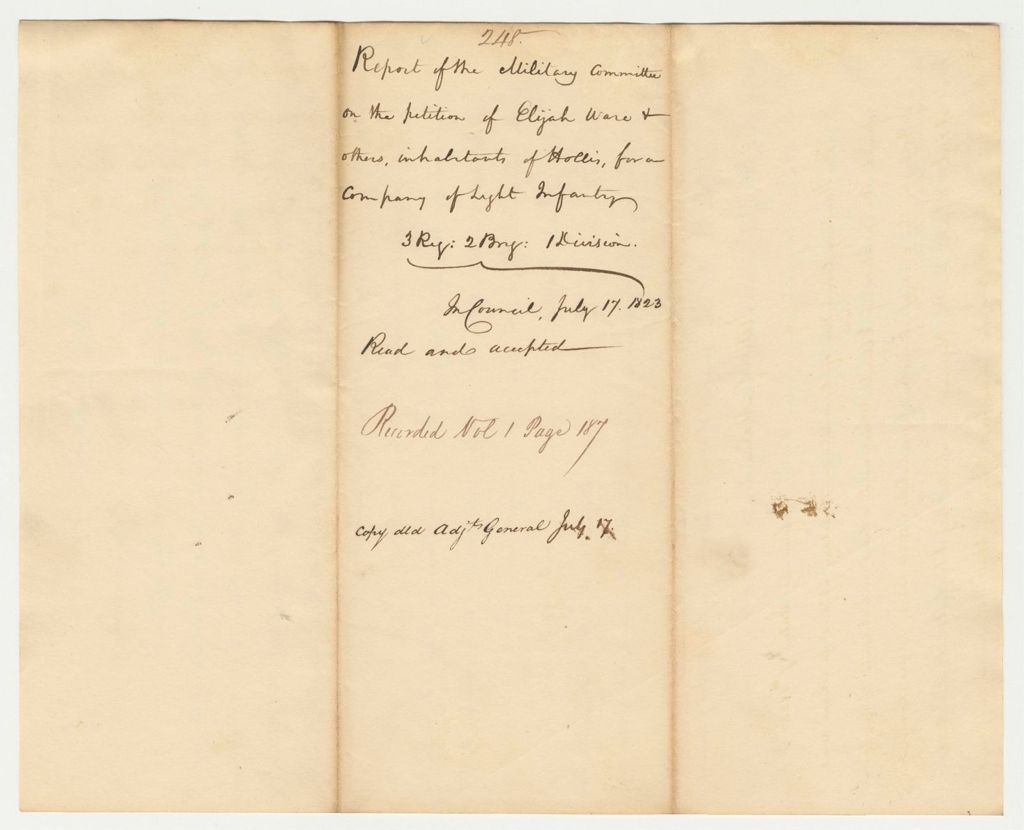 248.
Report of the Military Committee
on the petition of Elijah Ware &
others, inhabitants of Hollis, for a
Company of Light Infantry
3 Reg: 2 Brig: 1 Division.
In Council, July 17. 1823
Read and accepted
Recorded Vol 1 Page 187
Copy dld Adjt General July 17.